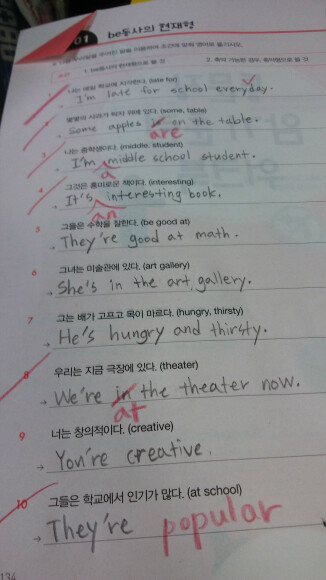 01 be동사의 현재형
1. be동사의 현재형으로 쓸 것
2. 축약 가능한 경우, 축약형으로 쓸 것
나는 매일 학교에 지각한다. (late for)
→ I'm late for school everyday.
몇몇의 사과가 탁자 위에 있다. (some, table)
→ Some apples is on the table.
are
3 나는 중학생이다. (middle, student)
→ I'm middle school student.
a
4 그것은 흥미로운 책이다. (interesting)
→ It's interesting book.
an
5 그들은 수학을 잘한다. (be good at)
→ They're good at math.
6 그녀는 미술관에 있다. (art gallery)
→ She's in the art gallery.
7 그는 배가 고프고 목이 마르다. (hungry, thirsty)
→ He's hungry and thirsty.
8 우리는 지금 극장에 있다. (theater)
→ We're in the theater now.
at
9 너는 창의적이다. (creative)
→ You're creative.
10 그들은 학교에서 인기가 많다. (at school)
→ They're popular
134